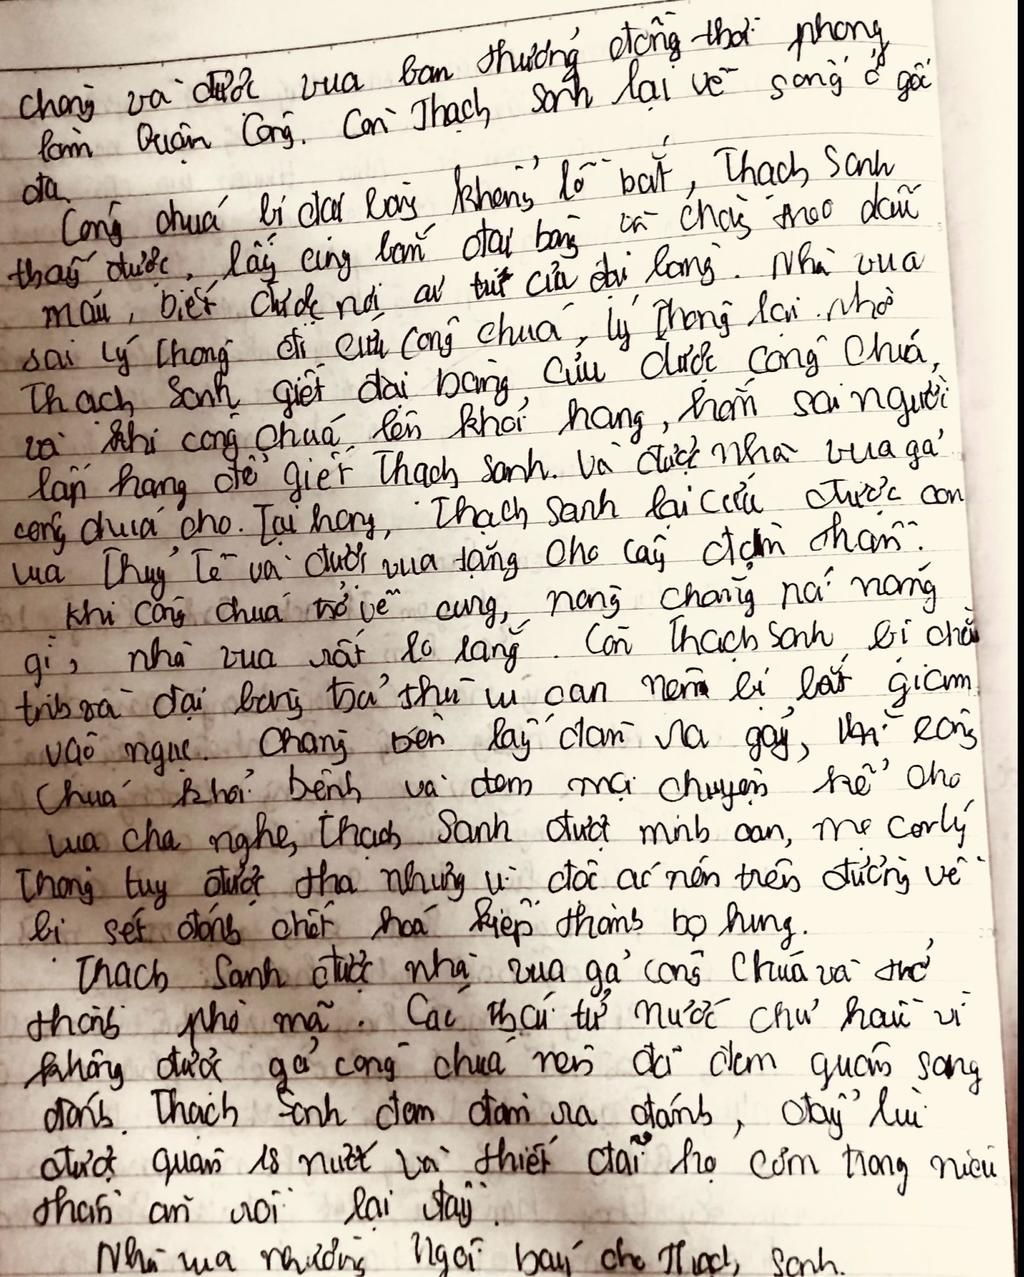 chàng và được vua ban thưởng đồng thời phong
làm Quận Công. Còn Thạch Sanh lại về sống ở gốc
đa.
Công chúa bị đại bàng khổng lồ bắt, Thạch Sanh
thấy được, lấy cung bắn đại bàng và chạy theo dấu
máu, biết được nơi cư của đại bàng. Nhà vua
sai Lý Thông đi cứu công chúa, Lý Thông lại nhờ
Thạch Sanh giết đại bàng, cứu được công chúa,
và khi công chúa lên khỏi hang, hắn sai người
lấp hang để giết Thạch Sanh. Và được nhà vua gả
công chúa cho. Tại hang, Thạch Sanh lại cứu được con
vua Thuỷ Tề và được vua tặng cho cây đàn thần.
Khi công chúa trở về cung, nàng chẳng nói năng
gì, nhà vua rất lo lắng. Còn Thạch Sanh bị chằn
tinh và đại bàng trả thù vu oan nên bị bắt giam
vào ngục. Chàng bèn lấy đàn ra gảy, khi công
chúa khỏi bệnh và đem mọi chuyện kể cho
vua cha nghe, Thạch Sanh được minh oan, mẹ con Lý
Thông tuy được tha nhưng vì độc ác nên trên đường về
bị sét đánh chết hoá kiếp thành bọ hung.
Thạch Sanh được nhà vua gả công chúa và trở
thành phò mã. Các thái tử nước chư hầu vì
không được gả công chúa nên đã đem quân sang
đánh. Thạch Sanh đem đàn ra đánh, đẩy lùi
được quân 18 nước và thiết đãi họ cơm trong niêu
thần ăn rồi lại đầy.
Nhà vua nhường ngôi báu cho Thạch Sanh.